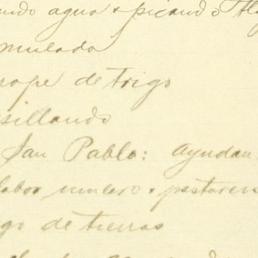 ndo agua + picando
mulada
rope de trigo
sillando
San Pablo: ayudan
labor mulero + pastoren
go de tierras